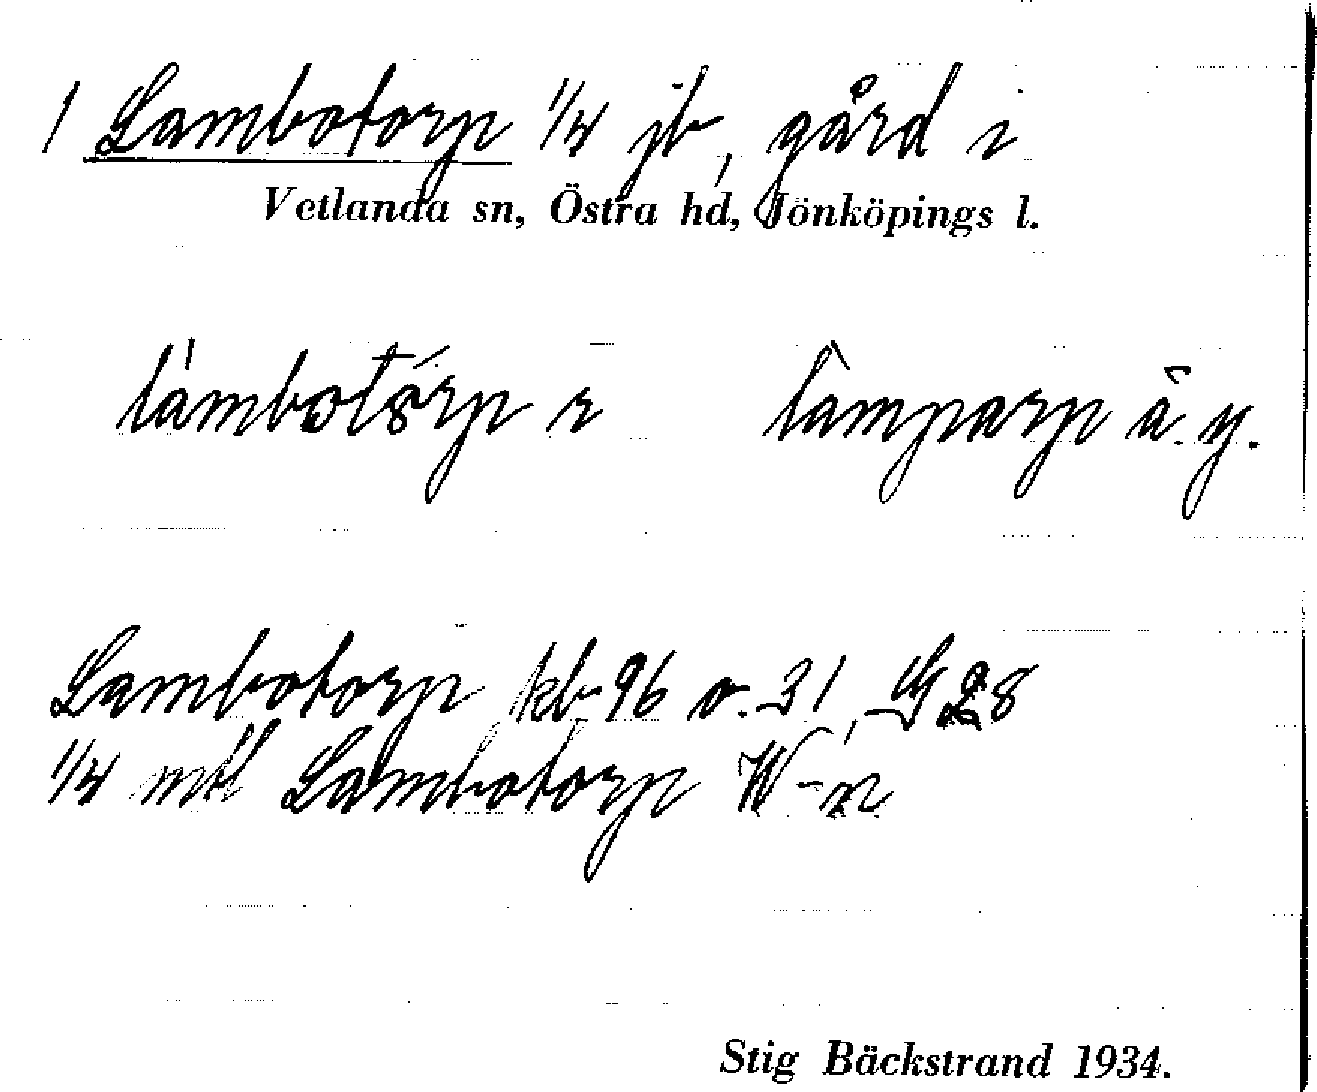 1 Lambotorp 1/4 jb, gård i
Vetlanda sn, Östra hd, Jönköpings l.
lámbotórp r lamparp å. y.
Lambotorp kb 96 o. 31, G28
1/4 mtl Lambotorp W-n
Stig Bäckstrand 1934.